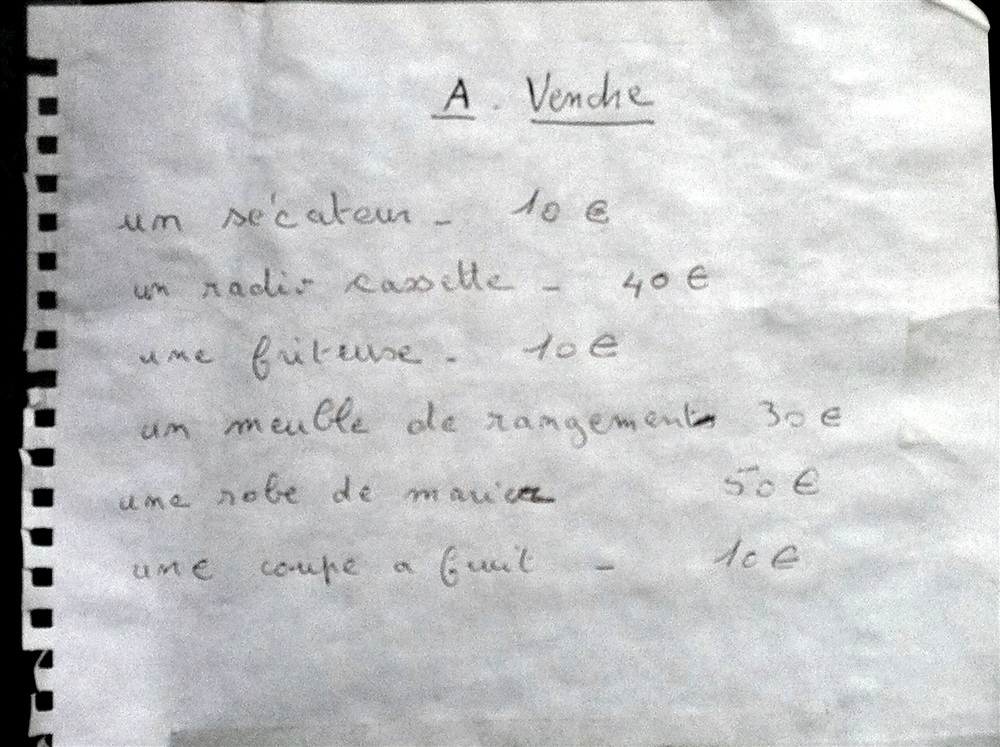 A. Vendre
un sécateur - 10 €
un radio cassette - 40 €
une friteuse - 10 €
un meuble de rangement 30 €
une robe de mariée 50 €
une coupe a fruit - 10 €